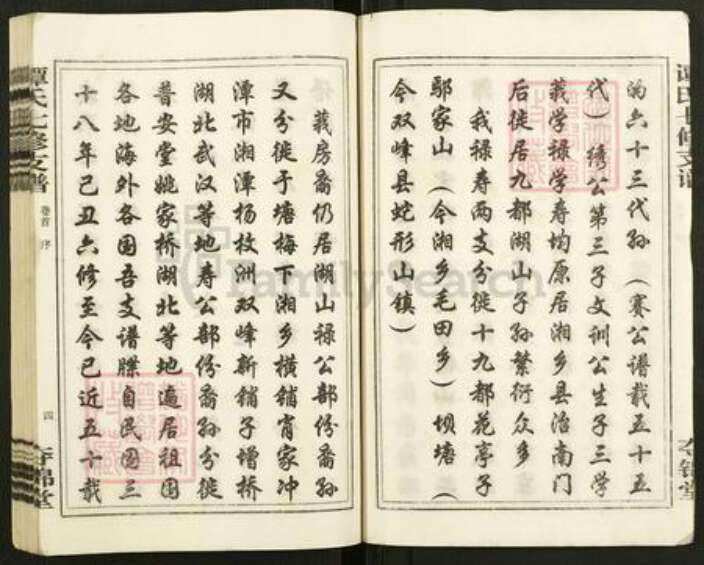 谭氏七修支谱
的六十三代孙（赛公谱载五十五
代）绣公第三子文训公生子三学
義学禄学寿均原居湘乡县治南门
后徙居九都湖山子孙繁衍众多
我禄寿两支分徙十九都苑亭子
鄢家山（今湘乡毛田乡）坝塘（
今双峰县蛇形山镇）
義房裔仍居湖山禄公部份裔孙
又分徙于塘梅下湘乡横铺宵家冲
潭市湘潭杨枚洲双峰新铺子增桥
湖北武汉等地寿公部份裔孙分徙
普安堂姚家桥湖北等地遍居祖国
各地海外各国吾支谱牒自民国三
十八年己丑六修至今已近五十载
谭氏七修支谱
卷首 序
四
FamilySearch